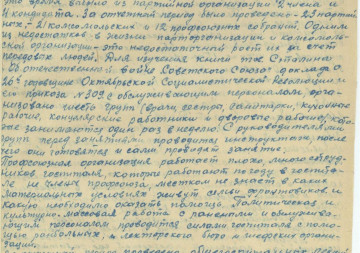 это время выбыло из партийной организации 2 члена и
1 кандидат. За отчетный период было проведено - 23 парт-
- 21 комсомольских и 12 профсоюзных собраний. Одним
из недостатков в жизни парторганизации и комсомоль-
ской организации - это недостаточный рост их за счет
передовых людей. Для изучения книги тов. Сталина
"О отечественной войне Советского Союза", доклада о
26й годовщине Октябрьской Социалистической Революции и
его приказа №309 с обслуживающим персоналом, орга-
низовано шесть групп (врачи, сестры, санитарки, кухонные
рабочие, канцелярские работники и дворовые рабочие), ко-
торые занимаются один раз в неделю. С руководителями
групп перед занятиями проводится инструктаж, после
чего они готовятся и сами проводят занятие.
Профсоюзная организация работает плохо, много сотруд-
ников госпиталя, которые работают по году в госпита-
ле не члены профсоюза, местком не знает в каких
материальных условиях живут семьи фронтовиков и
какую необходимо оказать помощь. Политическая и
культурно-массовая работа с ранеными и обслужива-
ющим персоналом проводится силами госпиталя с помо-
щью и лекторского бюро и шефских органи-
заций.